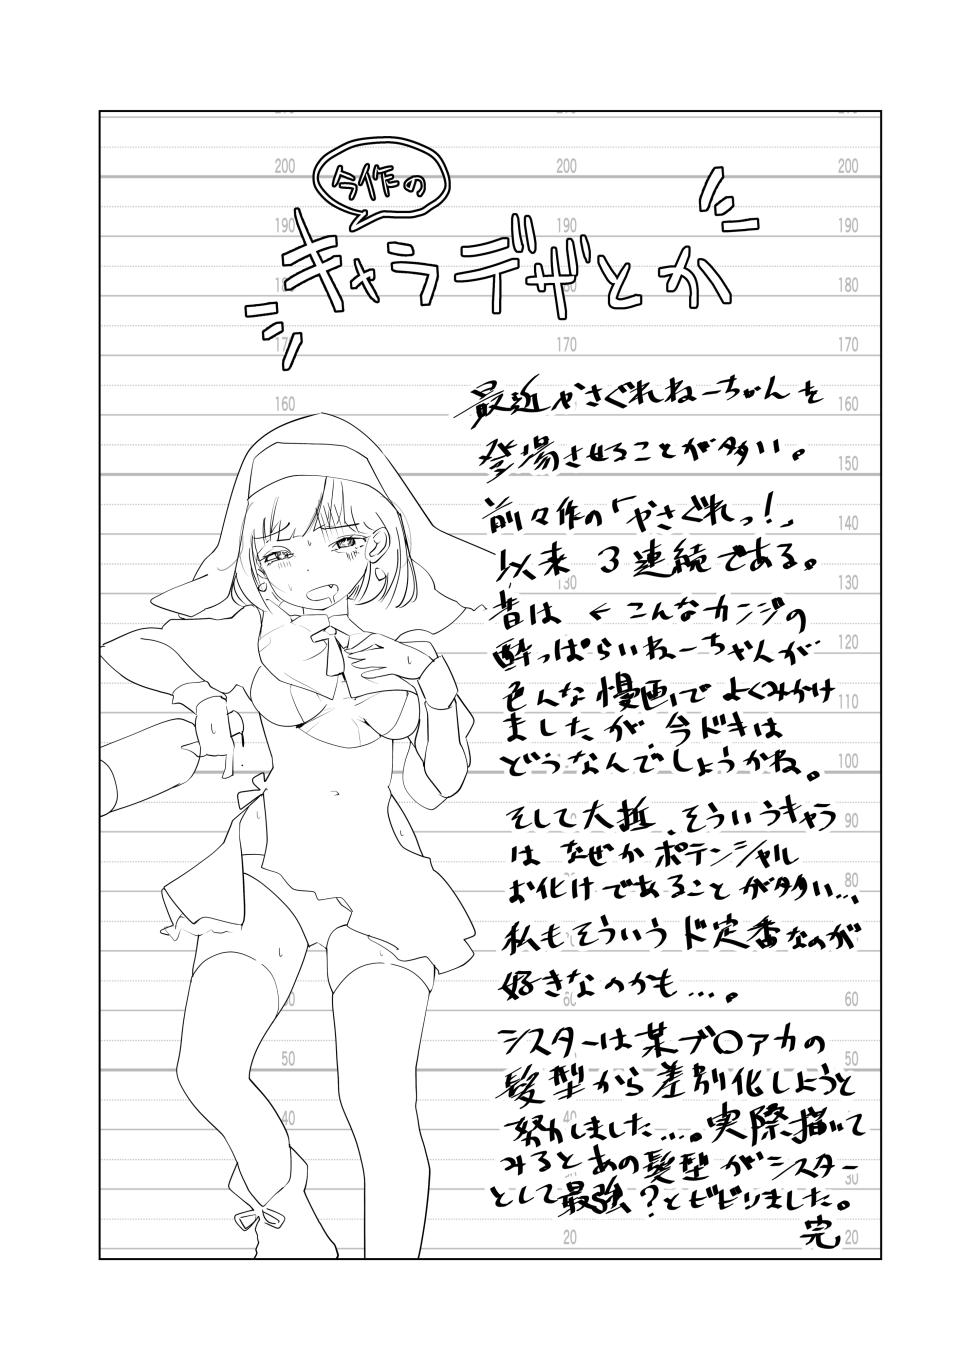 今作の
キャラデザとか
最近やさぐれねーちゃんを
登場させることが多い。
前々作の「やさぐれっ!」
以来 3連続である。
昔は ← こんなカンジの
酔っぱらいねーちゃんが
色んな漫画でよくみかけ
ましたが、今ドキは
どうなんでしょうかね。
そして大抵、そういうキャラ
は なぜかポテンシャル
お化けであることが多い…、
私もそういうド定番なのが
好きなのかも…。
シスターは某ブ〇アカの
髪型から差別化しようと
努力しました…。実際描いて
みるとあの髪型がシスター
として最強?とビビりました。
完
200 200 200
190 190 190
180 180
170 170 170
160 160
150
140
130 130
120
110
100
90
80
60 60
50 50
40 40
30
20 20